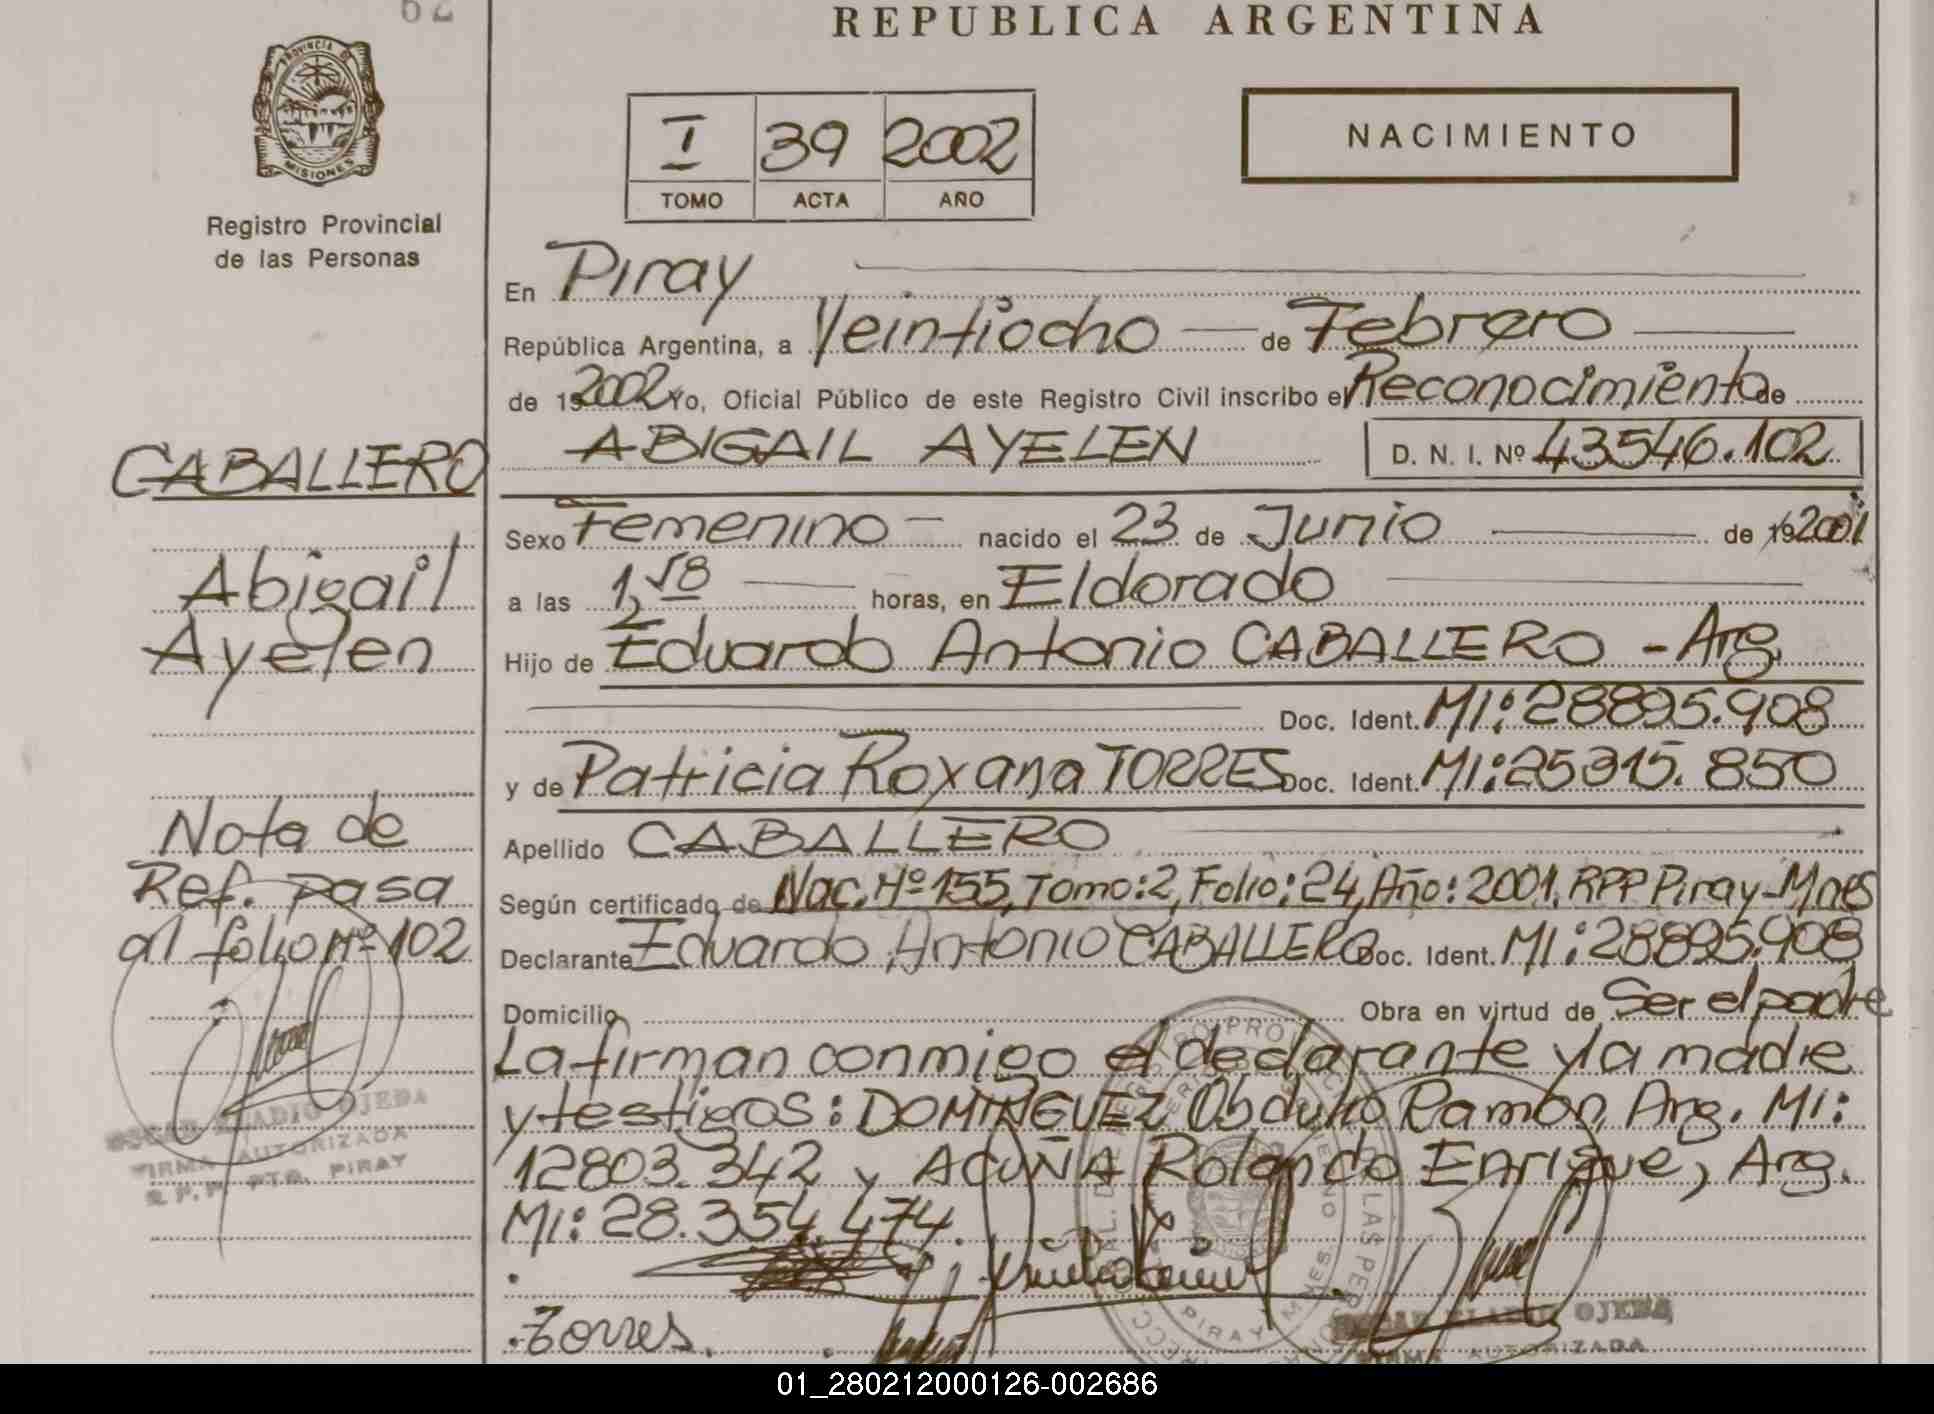 62
REPUBLICA ARGENTINA
PROVINCIA DE
MISIONES
Registro Provincial
de las Personas
I 39 2002
TOMO ACTA AÑO
NACIMIENTO
En Piray
República Argentina, a Veintiocho de Febrero
de 19 2002 Yo, Oficial Público de este Registro Civil inscribo el Reconocimiento de
ABIGAIL AYELEN D. N. I. Nº 43546.102
Sexo Femenino - nacido el 23 de Junio de 19 2001
a las 1,58 horas, en Eldorado
Hijo de Eduardo Antonio CABALLERO - Arg
Doc. Ident. MI: 28895.908
y de Patricia Roxana TORRES Doc. Ident. MI: 25315.850
Apellido CABALLERO
Según certificado de Nac. Nº 155, Tomo: 2, Folio: 24, Año: 2001. RPP Piray-Mnes
Declarante Eduardo Antonio CABALLERO Doc. Ident. MI: 28895.908
Domicilio Obra en virtud de Ser el padre
La firman conmigo el declarante y la madre
y testigos: DOMINGUEZ Obdulio Ramón, Arg. MI:
12803.342 y ACUÑA Rolando Enrique, Arg.
MI: 28.354.474.
Torres.
CABALLERO
Abigail
Ayelen
Nota de
Ref. pasa
al folio Nº 102
OSCAR ELADIO OJEDA
FIRMA AUTORIZADA
R.P.P. PTO. PIRAY
OSCAR ELADIO OJEDA
FIRMA AUTORIZADA
01_280212000126-002686